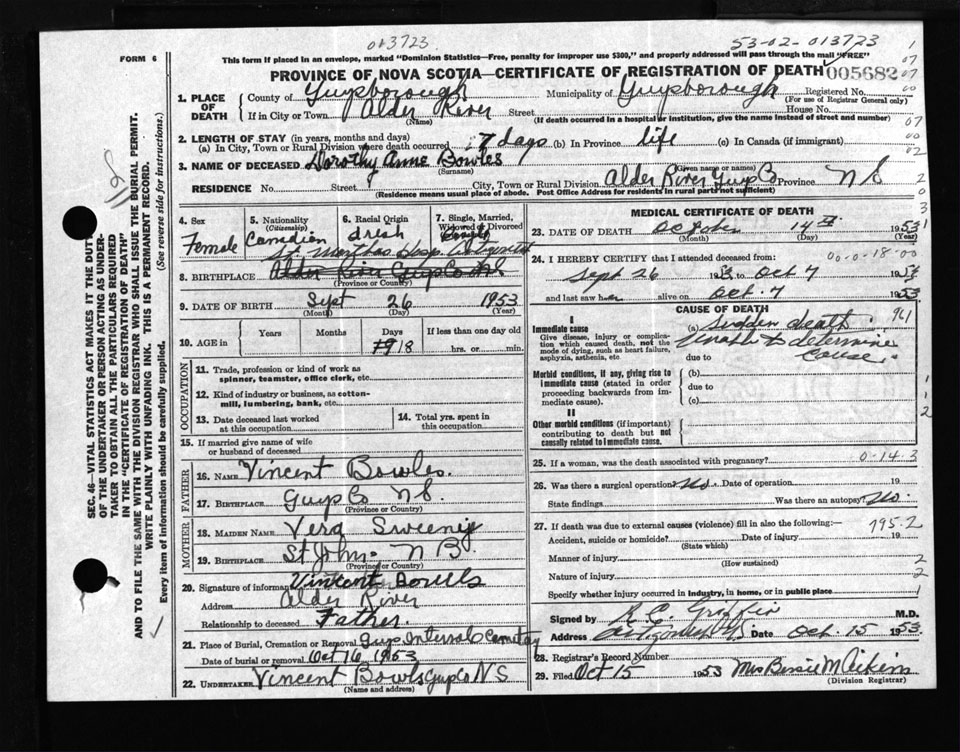 013723
53-02-013723
FORM 6
This form if placed in an envelope, marked "Dominion Statistics—Free, penalty for improper use $300," and properly addressed will pass through the mail "FREE"
PROVINCE OF NOVA SCOTIA—CERTIFICATE OF REGISTRATION OF DEATH 005682
1. PLACE OF DEATH
County of Guysborough Municipality of Guysborough Registered No.
(For use of Registrar General only)
If in City or Town Alder River Street House No.
(Name) (If death occurred in a hospital or institution, give the name instead of street and number)
2. LENGTH OF STAY (in years, months and days)
(a) In City, Town or Rural Division where death occurred 7 days (b) In Province life (c) In Canada (if immigrant)
3. NAME OF DECEASED Dorothy Anne Bowles
(Surname) (Given name or names)
RESIDENCE No. Street City, Town or Rural Division Alder River Guys Co Province N S
(Residence means usual place of abode. Post Office Address for residents in rural parts not sufficient)
4. Sex Female
5. Nationality (Citizenship) Canadian
6. Racial Origin Irish
7. Single, Married, Widowed or Divorced
St. Marthas Hosp. Antigonish
8. BIRTHPLACE Alder River Guys Co N.S.
(Province or Country)
9. DATE OF BIRTH Sept 26 1953
(Month) (Day) (Year)
10. AGE in Years Months Days 18 If less than one day old
hrs. or min.
OCCUPATION
11. Trade, profession or kind of work as spinner, teamster, office clerk, etc.
12. Kind of industry or business, as cotton-mill, lumbering, bank, etc.
13. Date deceased last worked at this occupation
14. Total yrs. spent in this occupation
15. If married give name of wife or husband of deceased
FATHER
16. NAME Vincent Bowles.
17. BIRTHPLACE Guys Co N S.
(Province or Country)
MOTHER
18. MAIDEN NAME Vera Sweeney
19. BIRTHPLACE St John - N B.
(Province or Country)
20. Signature of informant Vincent Bowls
Address Alder River
Relationship to deceased Father.
21. Place of Burial, Cremation or Removal Guys Intervale Cemetay
Date of burial or removal Oct 16 1953
22. UNDERTAKER Vincent Bowls Guys Co N S
(Name and address)
MEDICAL CERTIFICATE OF DEATH
23. DATE OF DEATH October 14th 1953
(Month) (Day) (Year)
24. I HEREBY CERTIFY that I attended deceased from:
00-0-18-00
Sept 26 1953 to Oct 7 1953
and last saw her alive on Oct. 7 1953
CAUSE OF DEATH
I
Immediate cause
Give disease, injury or complication which caused death, not the mode of dying, such as heart failure, asphyxia, asthenia, etc.
(a) Sudden death.
Unable to determine
due to cause.
Morbid conditions, if any, giving rise to immediate cause (stated in order proceeding backwards from immediate cause).
(b)
due to
(c)
II
Other morbid conditions (if important) contributing to death but not causally related to immediate cause.
25. If a woman, was the death associated with pregnancy? 0-14-3
26. Was there a surgical operation? No. Date of operation 19
State findings Was there an autopsy? No.
27. If death was due to external causes (violence) fill in also the following:— 795-2
Accident, suicide or homicide? Date of injury 19
(State which)
Manner of injury
(How sustained)
Nature of injury
Specify whether injury occurred in industry, in home, or in public place
Signed by R. C. Griffin M.D.
Address Antigonish Date Oct. 15 1953
28. Registrar's Record Number
29. Filed Oct 15 1953 Mrs Bessie M Aikins
(Division Registrar)
SEC. 46—VITAL STATISTICS ACT MAKES IT THE DUTY
OF THE UNDERTAKER OR PERSON ACTING AS UNDER-
TAKER TO OBTAIN ALL THE PARTICULARS REQUIRED
IN THE "CERTIFICATE OF REGISTRATION OF DEATH"
AND TO FILE THE SAME WITH THE DIVISION REGISTRAR WHO SHALL ISSUE THE BURIAL PERMIT.
WRITE PLAINLY WITH UNFADING INK. THIS IS A PERMANENT RECORD.
Every item of information should be carefully supplied. (See reverse side for instructions.)